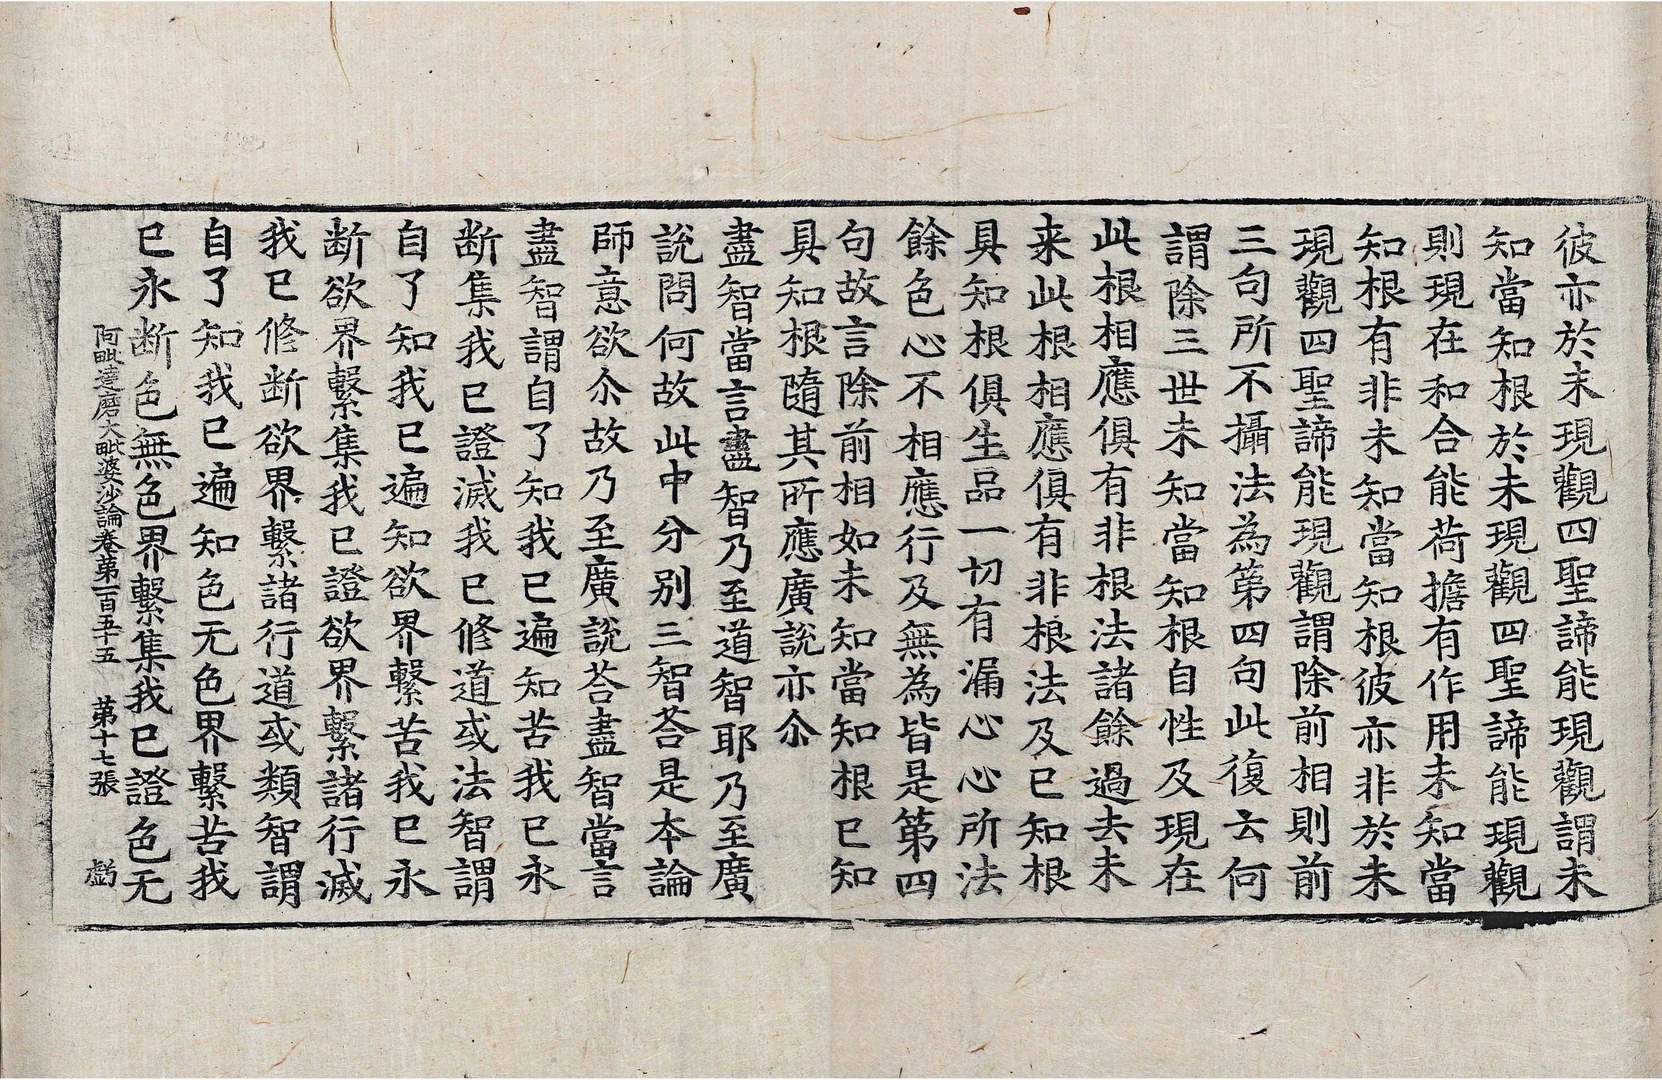 彼亦於未現觀四聖諦能現觀謂未
知當知根於未現觀四聖諦能現觀
則現在和合能荷擔有作用未知當
知根有非未知當知根彼亦非於未
現觀四聖諦能現觀謂除前相則前
三句所不攝法為第四句此復云何
謂除三世未知當知根自性及現在
此根相應俱有非根法諸餘過去未
来此根相應俱有非根法及已知根
具知根俱生品一切有漏心心所法
餘色心不相應行及無為皆是第四
句故言除前相如未知當知根已知
具知根隨其所應廣說亦尒
盡智當言盡智乃至道智耶乃至廣
說問何故此中分別三智荅是本論
師意欲尒故乃至廣說荅盡智當言
盡智謂自了知我已遍知苦我已永
断集我已證滅我已修道或法智謂
自了知我已遍知欲界繫苦我已永
断欲界繫集我已證欲界繫諸行滅
我已修断欲界繫諸行道或類智謂
自了知我已遍知色无色界繫苦我
已永断色無色界繫集我已證色无
阿毗達磨大毗婆沙論卷第一百五十五　第十七張